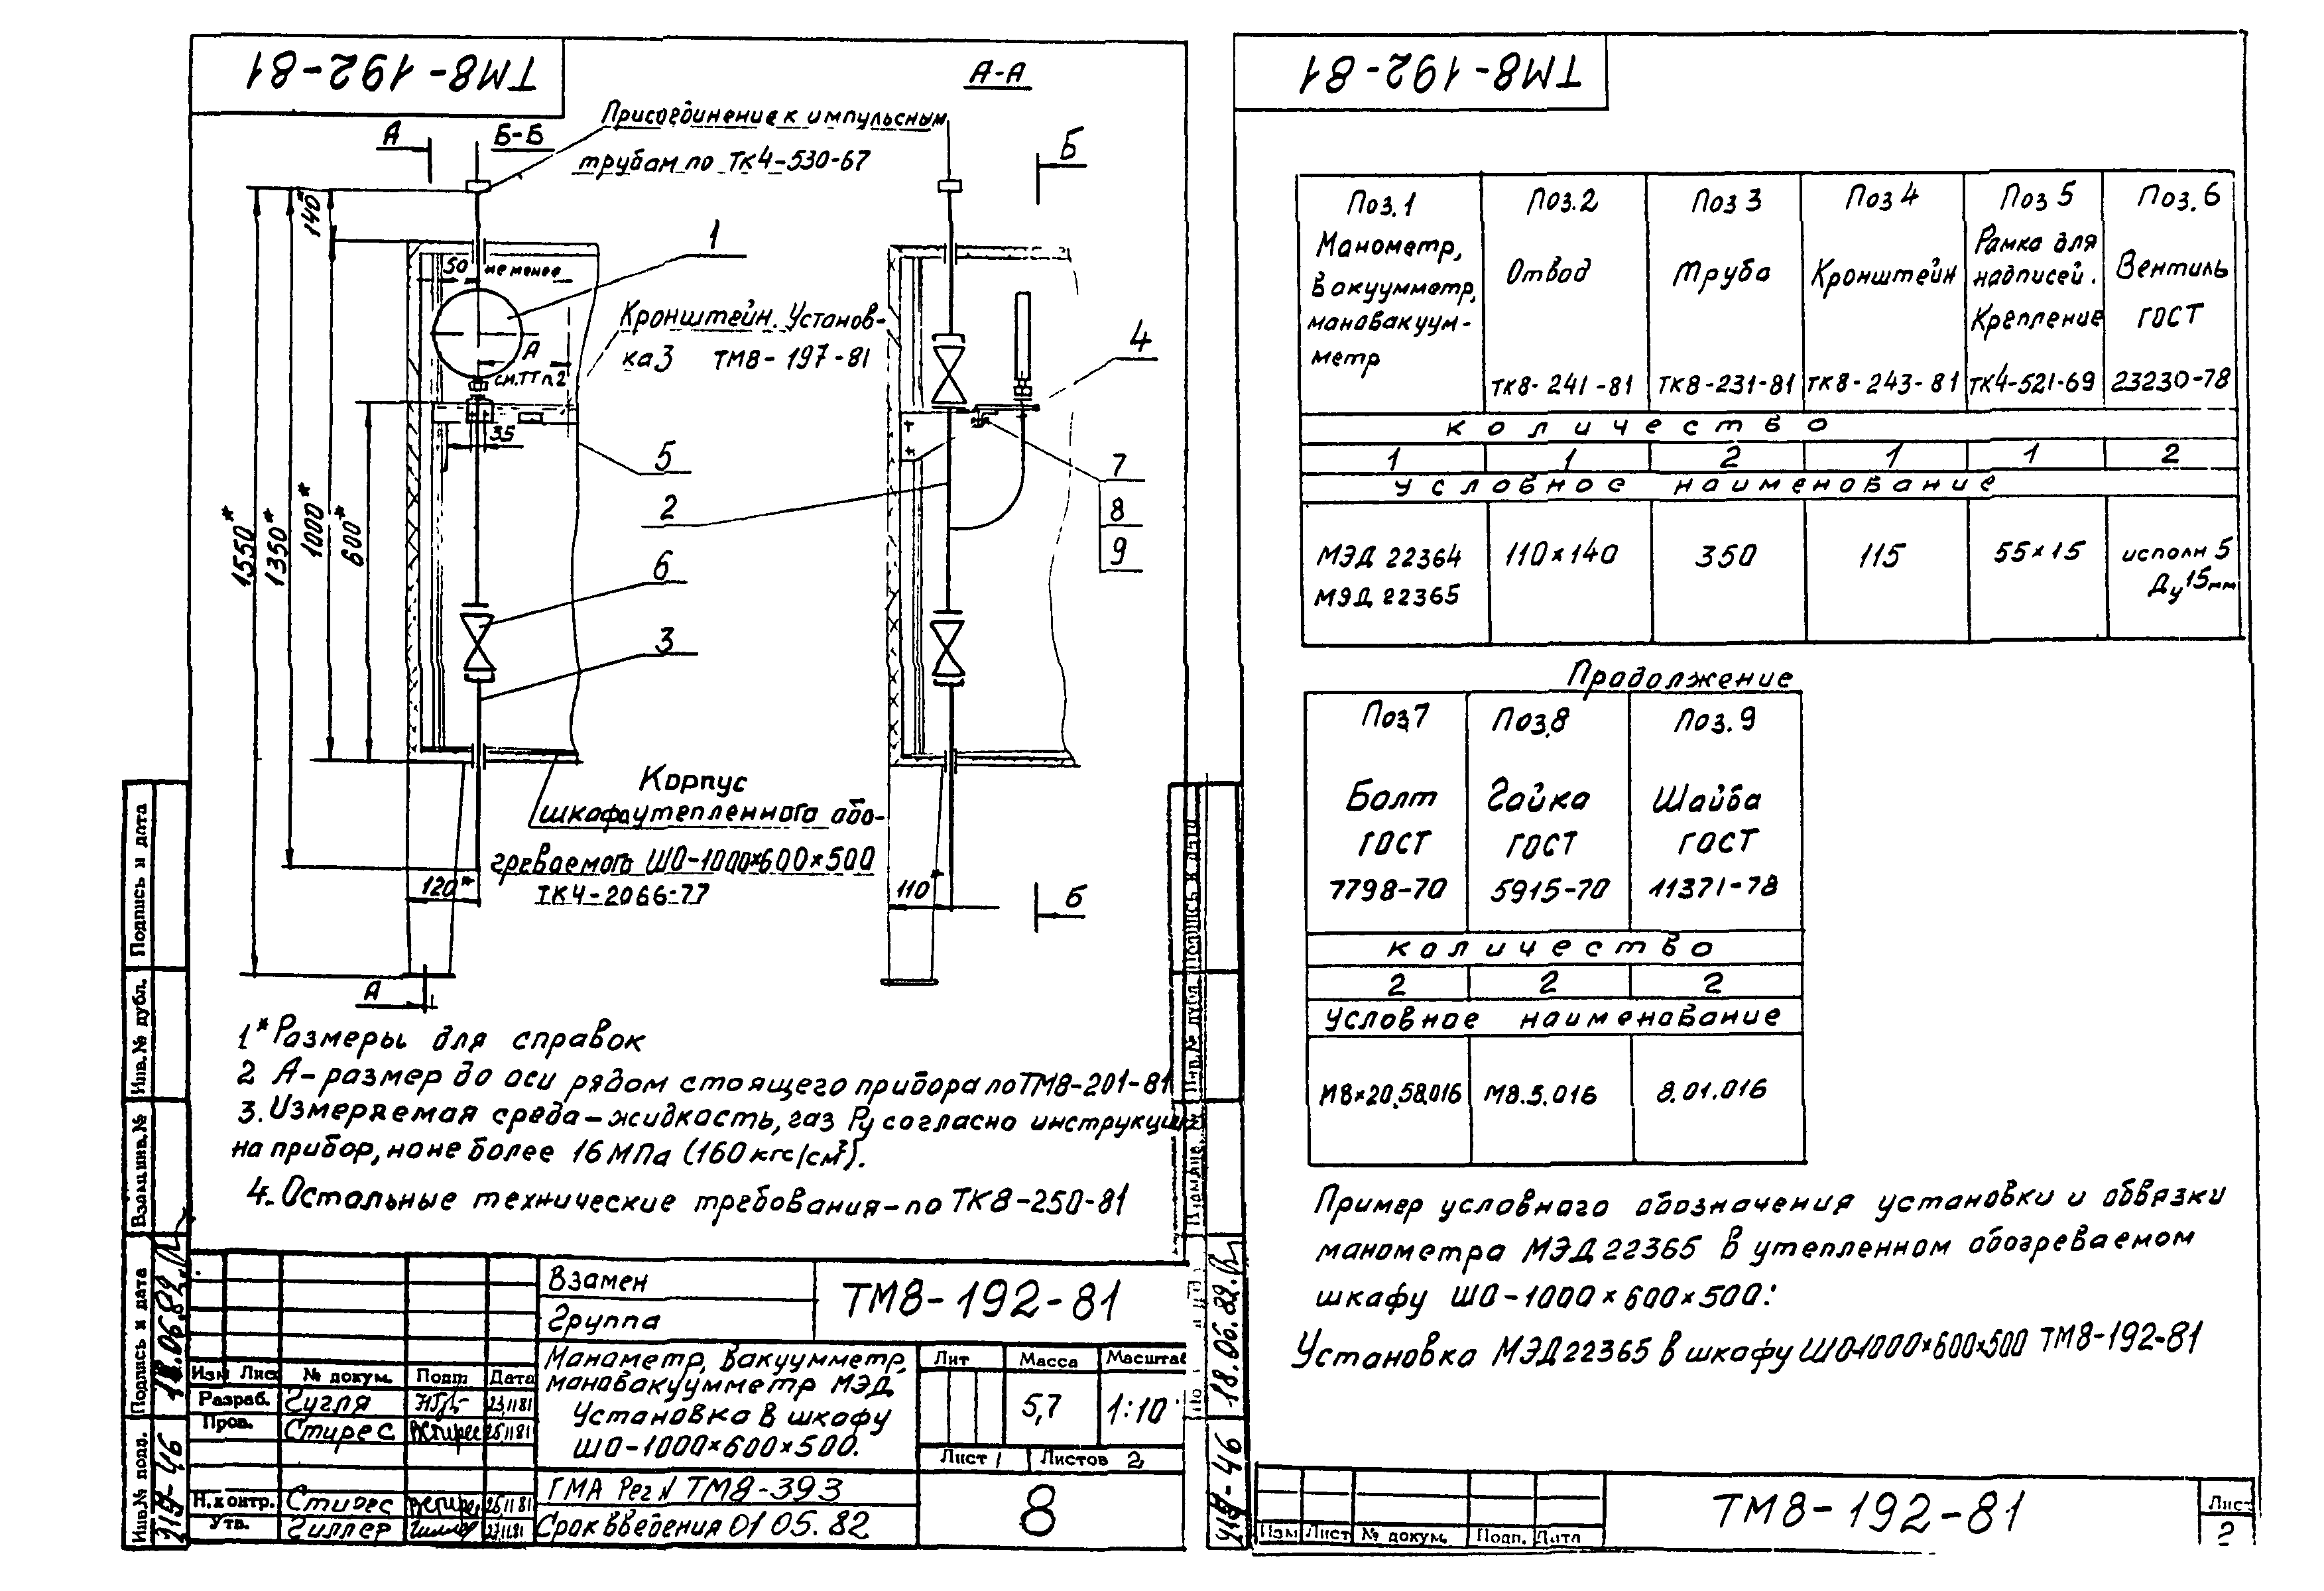 ТМ8-192-81
А-А
А
Б-Б
Присоединение к импульсным
трубам по ТК4-530-67
Б
140*
1
50
не менее
Кронштейн. Установ-
ка 3 ТМ8-197-81
4
А
см. ТТ п. 2
35
5
7
2
8
9
6
3
1550*
1350*
1000*
600*
Корпус
шкафа утепленного обо-
греваемого ШО-1000×600×500
ТК4-2066-77
120*
110*
Б
А
1* Размеры для справок
2 А-размер до оси рядом стоящего прибора по ТМ8-201-81
3. Измеряемая среда-жидкость, газ Ру согласно инструкции
на прибор, но не более 16 МПа (160 кгс/см²).
4. Остальные технические требования-по ТК8-250-81
Подпись и дата
Инв.№ дубл.
Взам.инв.№
Подпись и дата
18.06.82.
Инв.№ подл.
Взамен
Группа
ТМ8-192-81
Изм Лис № докум. Подп Дата
Разраб. Гугля 23.11.81
Пров. Стирес 25.11.81
Н.контр. Стирес 25.11.81
Утв. Гиллер 27.11.81
Манометр, вакуумметр,
мановакуумметр МЭД.
Установка в шкафу
ШО-1000×600×500.
Лит Масса Масштаб
5,7 1:10
Лист 1 Листов 2
ГМА Рег N ТМ8-393
Срок введения 01 05.82
8
ТМ8-192-81
Поз.1 Поз.2 Поз 3 Поз 4 Поз 5 Поз.6
Манометр,
вакуумметр,
мановакуум-
метр
Отвод
ТК8-241-81
Труба
ТК8-231-81
Кронштейн
ТК8-243-81
Рамка для
надписей.
Крепление
ТК4-521-69
Вентиль
ГОСТ
23230-78
количество
1 1 2 1 1 2
условное наименование
МЭД 22364
МЭД 22365
110×140
350
115
55×15
исполн 5
Ду 15мм
Продолжение
Поз7 Поз.8 Поз.9
Болт Гайка Шайба
ГОСТ ГОСТ ГОСТ
7798-70 5915-70 11371-78
количество
2 2 2
условное наименование
М8×20.58.016 М8.5.016 8.01.016
Пример условного обозначения установки и обвязки
манометра МЭД 22365 в утепленном обогреваемом
шкафу ШО-1000×600×500:
Установка МЭД 22365 в шкафу ШО-1000×600×500 ТМ8-192-81
18.06.82.
Изм Лист № докум. Подп. Дата
ТМ8-192-81
Лист
2